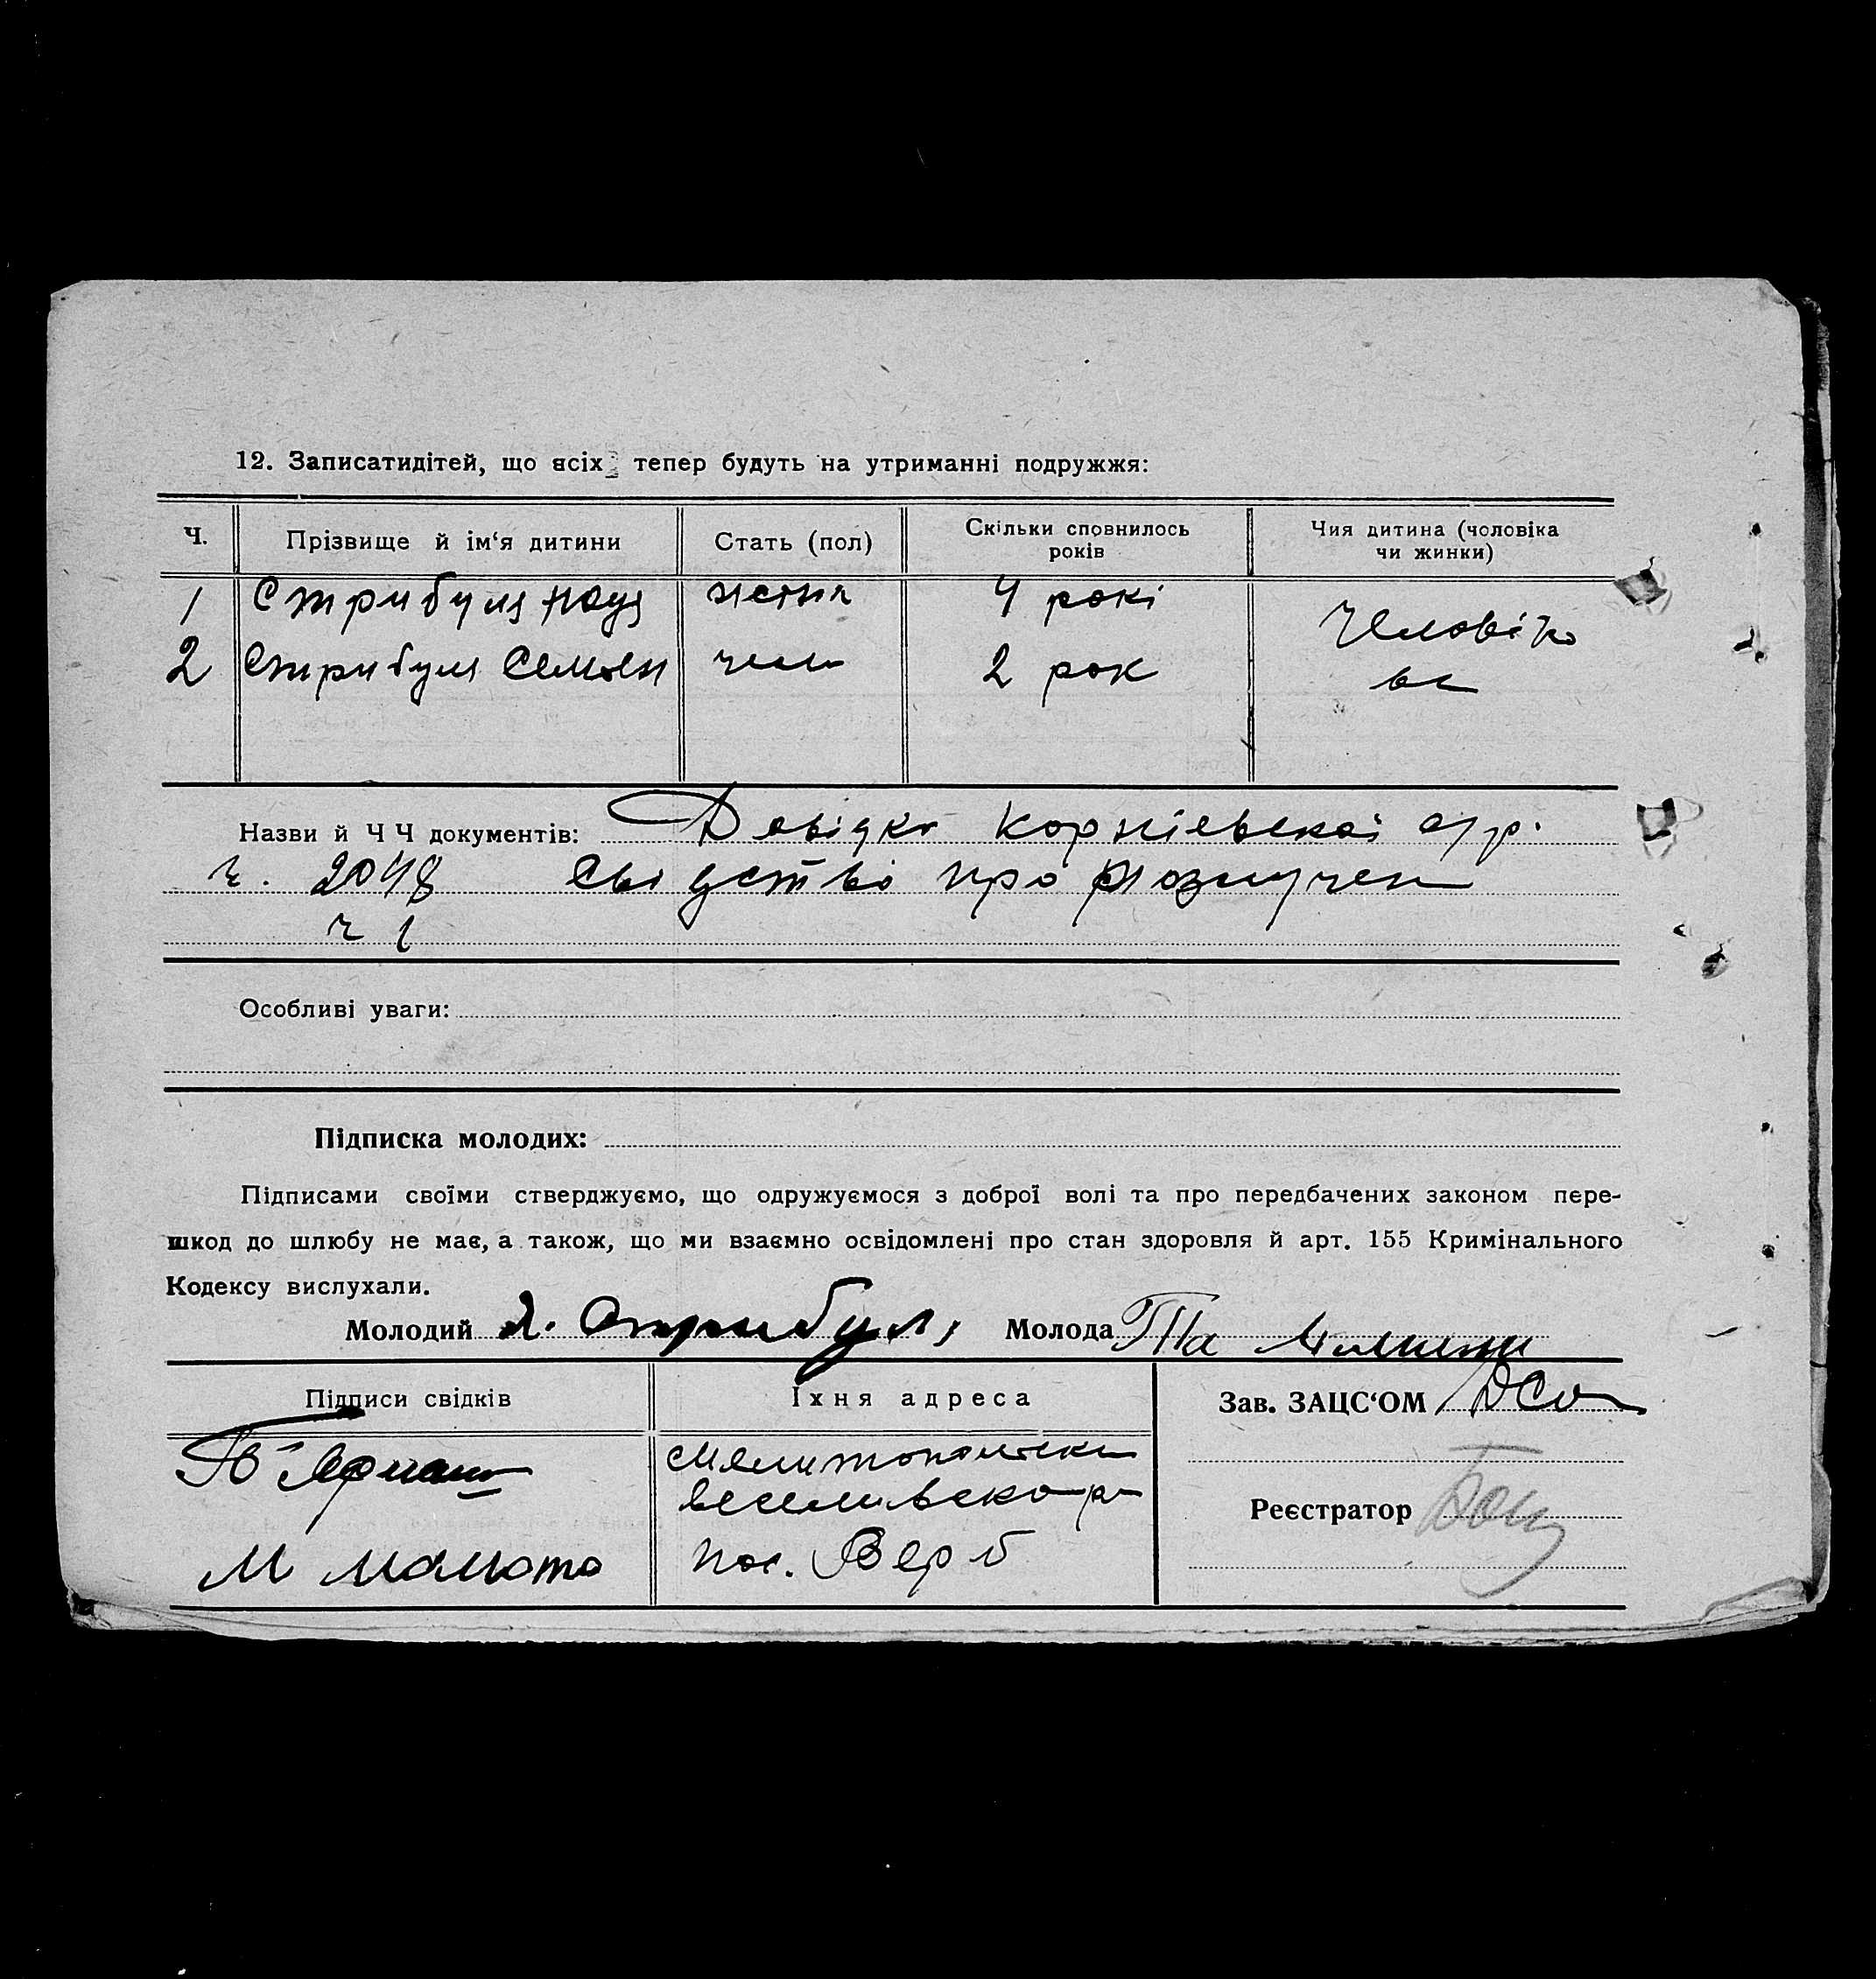 12. Записатидітей, що всіх тепер будуть на утриманні подружжя:
Ч. Прізвище й ім‘я дитини Стать (пол) Скільки сповнилось років Чия дитина (чоловіка чи жинки)
1 Стрибуля 4 рокі
2 Стрибуля Семьен чол 2 рок
Человіко
Назви й Ч Ч документів: Довідка с/р.
ч. 2048 Свідство про розлучен
ч 1
Особливі уваги:
Підписка молодих:
Підписами своїми стверджуємо, що одружуємося з доброї волі та про передбачених законом пере-
шкод до шлюбу не має, а також, що ми взаємно освідомлені про стан здоровля й арт. 155 Кримінального
Кодексу вислухали.
Молодий Стрибуля Молода
Підписи свідків Їхня адреса Зав. ЗАЦС‘ОМ
Мелитопольски
веселивско р
Реєстратор
М Малюта пос. Верб